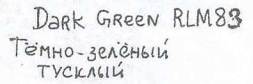 Dark Green RLM83
Тёмно-зелёный
тусклый